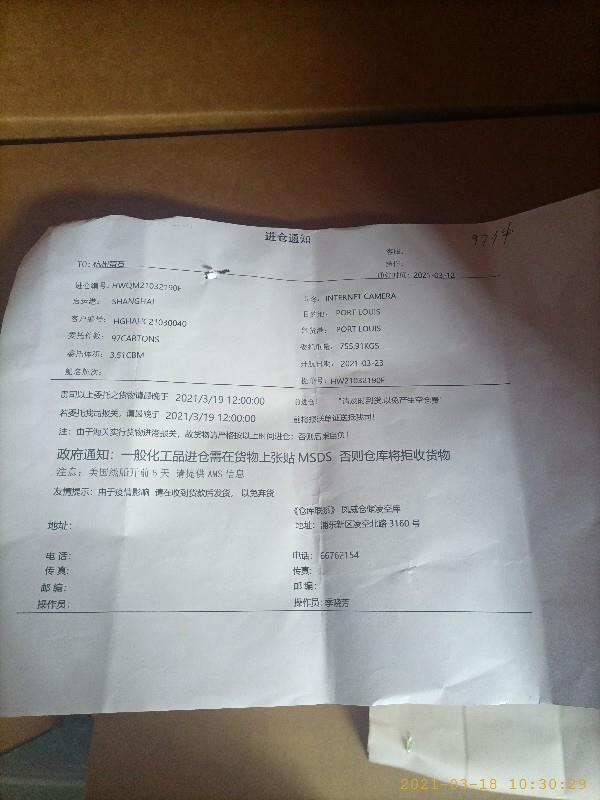 进仓通知
97件
TO: 杭州
客服:
操作:
时间: 2021-03-12
进仓编号: HWQM21032190F
品名: INTERNET CAMERA
启运港: SHANGHAI
目的地: PORT LOUIS
客户编号: HGHAHC21030040
卸货港: PORT LOUIS
委托件数: 97CARTONS
委托重量: 755.91KGS
委托体积: 3.51CBM
开航日期: 2021-03-23
船名航次:
提单号: HW21032190F
贵司以上委托之货物请最晚于 2021/3/19 12:00:00
前进仓! "请及时到货,以免产生空仓费"
若委托我司报关, 请最晚于 2021/3/19 12:00:00
前将报关单证送抵我司!
注: 由于海关实行货物进港报关, 故货物请严格按以上时间进仓; 否则后果自负!
政府通知: 一般化工品进仓需在货物上张贴 MSDS 否则仓库将拒收货物
注意: 美国线船开前 5 天 请提供 AMS 信息
友情提示: 由于疫情影响 请在收到货款后发货, 以免弃货
《仓库联系》 凤威仓储凌空库
地址:
地址: 浦东新区凌空北路 3160 号
电话:
电话: 66762154
传真:
传真:
邮编:
邮编:
操作员:
操作员: 季晓芳
2021-03-18 10:30:29